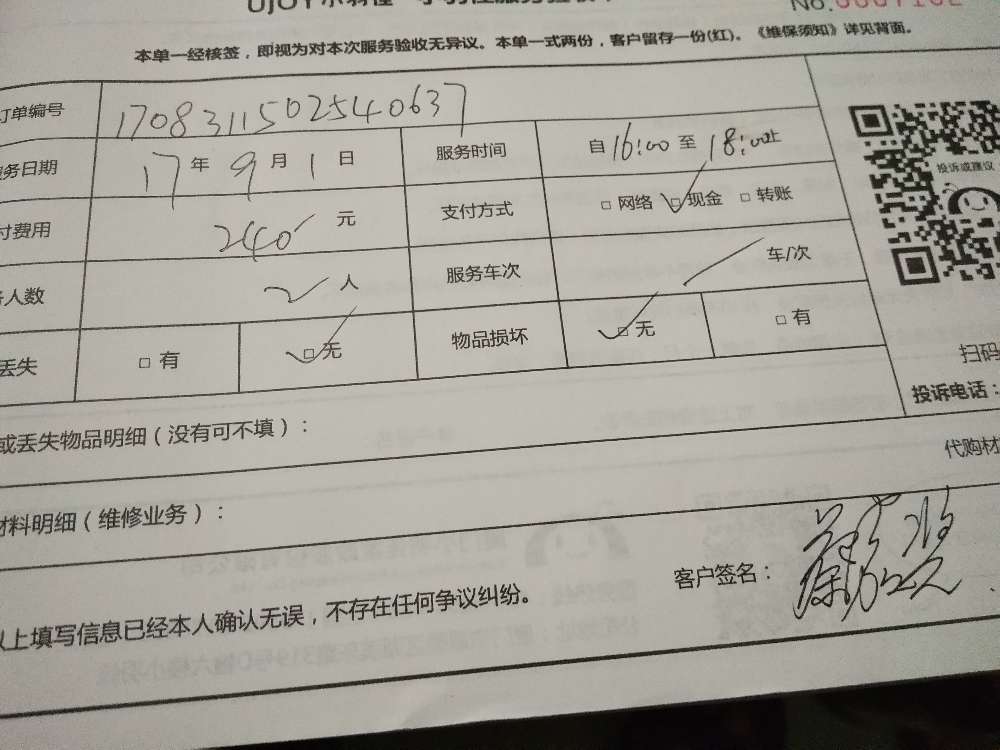 UJOY
No.
本单一经核签，即视为对本次服务验收无异议。本单一式两份，客户留存一份(红)。《维保须知》详见背面。
订单编号 1708311502540637
务日期 17 年 9 月 1 日 服务时间 自 16:00 至 18:00止
付费用 240 元 支付方式 □ 网络 □ 现金 □ 转账
人数 2 人 服务车次 车/次
丢失 □ 有 □ 无 物品损坏 □ 无 □ 有
投诉或建议
扫码
投诉电话：
或丢失物品明细（没有可不填）：
代购材
材料明细（维修业务）：
以上填写信息已经本人确认无误，不存在任何争议纠纷。
客户签名：